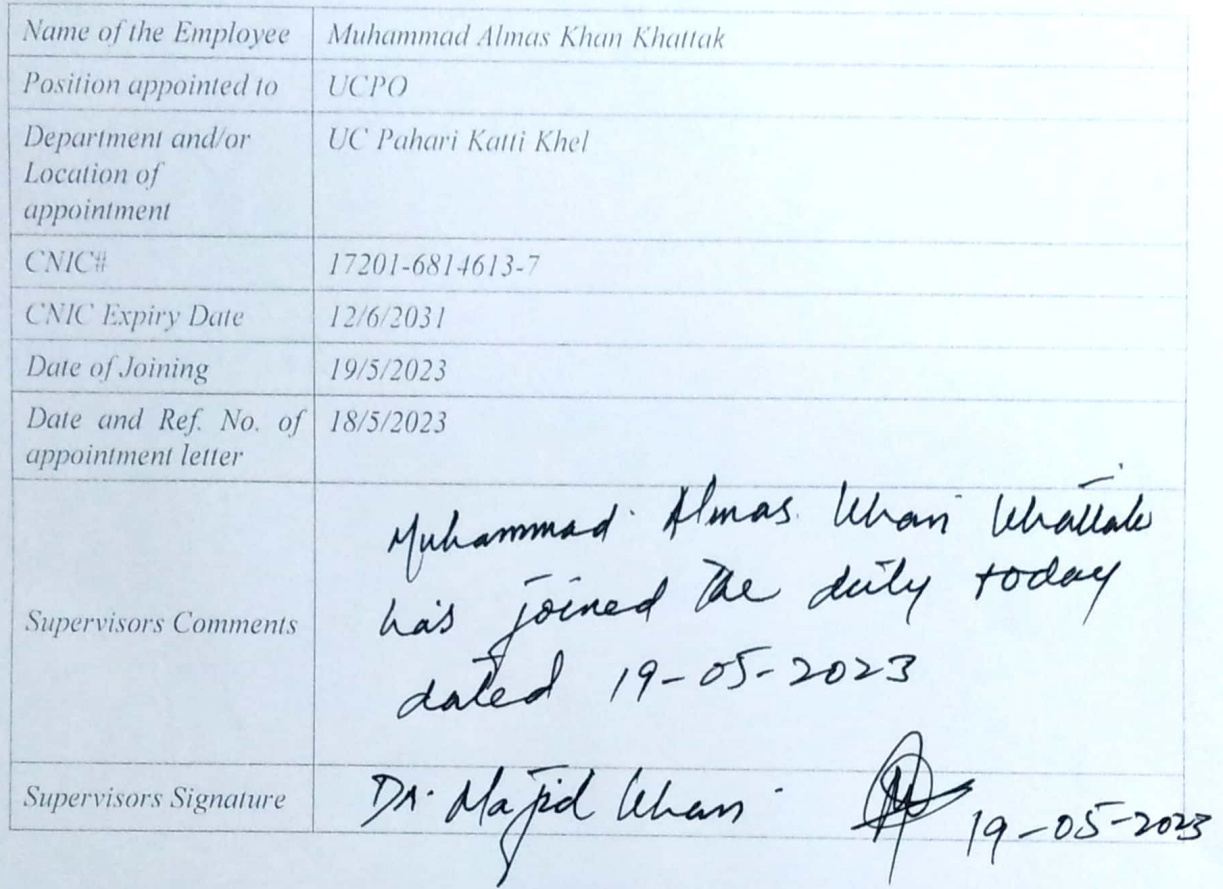 Name of the Employee Muhammad Almas Khan Khattak
Position appointed to UCPO
Department and/or UC Pahari Katti Khel
Location of
appointment
CNIC# 17201-6814613-7
CNIC Expiry Date 12/6/2031
Date of Joining 19/5/2023
Date and Ref. No. of 18/5/2023
appointment letter
Supervisors Comments
Muhammad Almas Khan Khattak
has joined the duty today
dated 19-05-2023
Supervisors Signature Dr. Majid Khan 19-05-2023